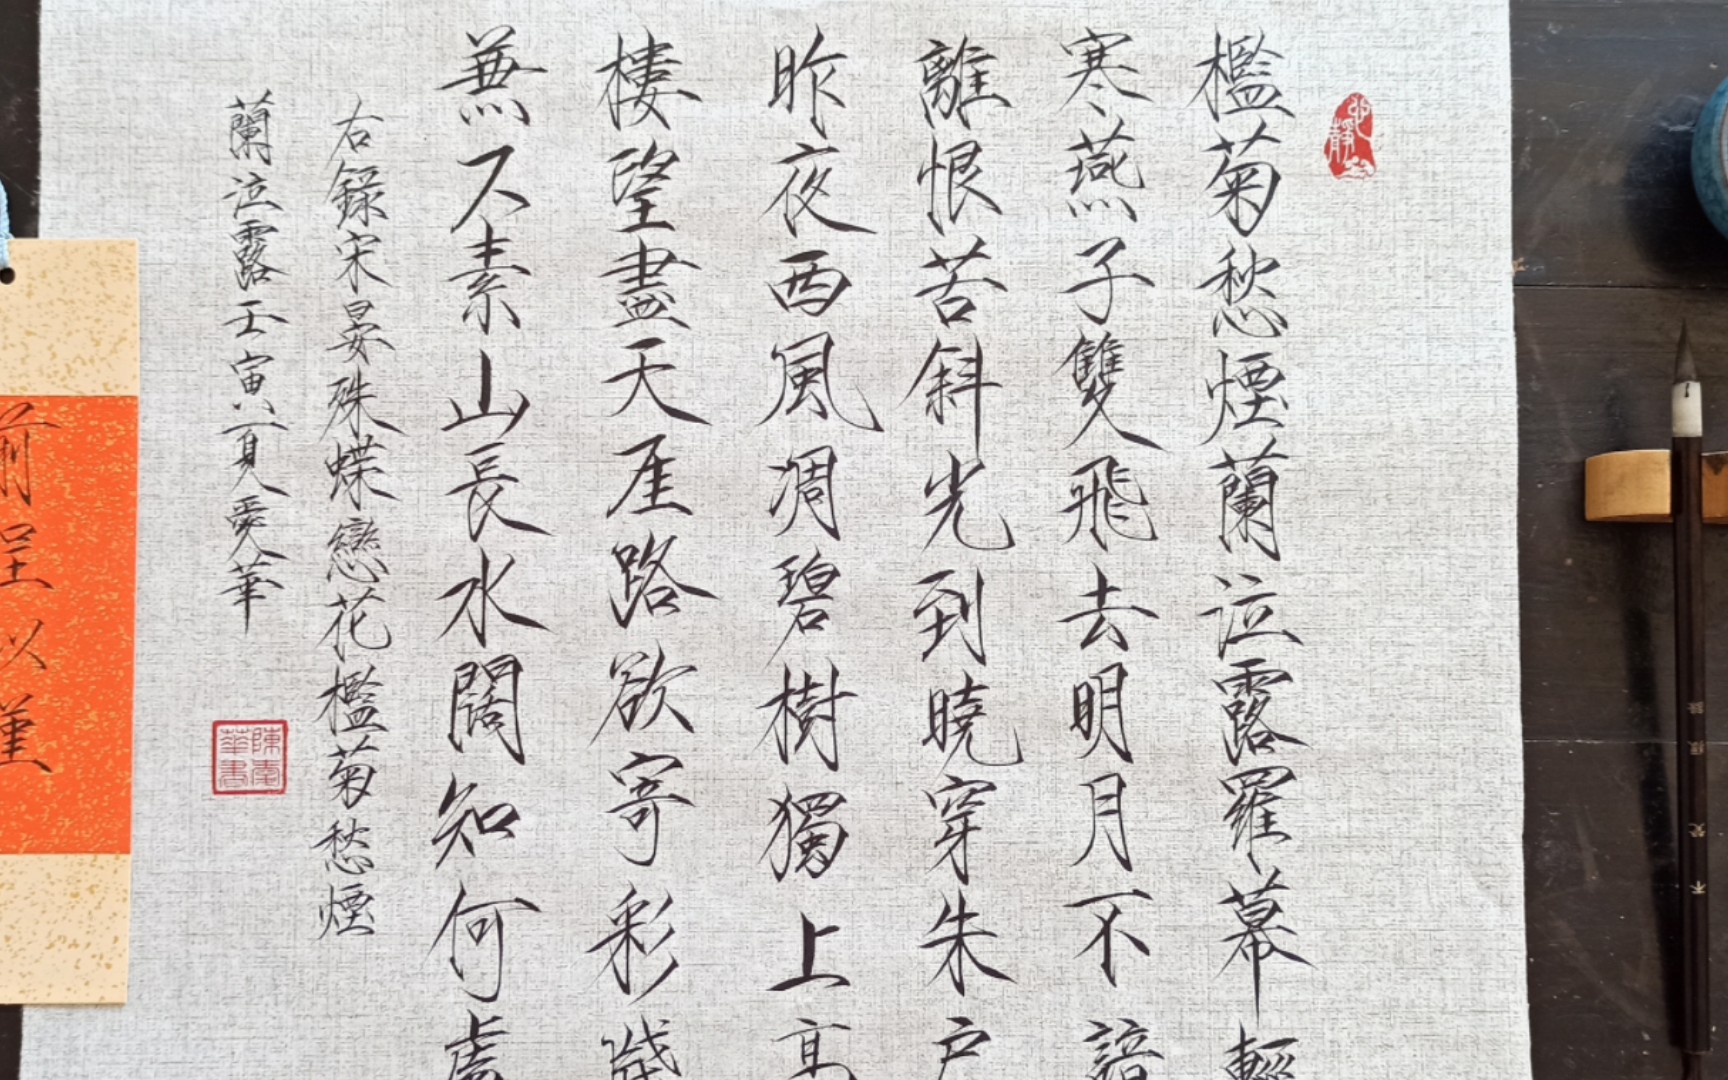 檻菊愁煙蘭泣露羅幕輕
寒燕子雙飛去明月不諳
離恨苦斜光到曉穿朱戶
昨夜西風凋碧樹獨上高
樓望盡天厓路欲寄彩牋
無尺素山長水闊知何處
右錄宋晏殊蝶戀花檻菊愁煙
蘭泣露壬寅夏愛華
陳愛華書